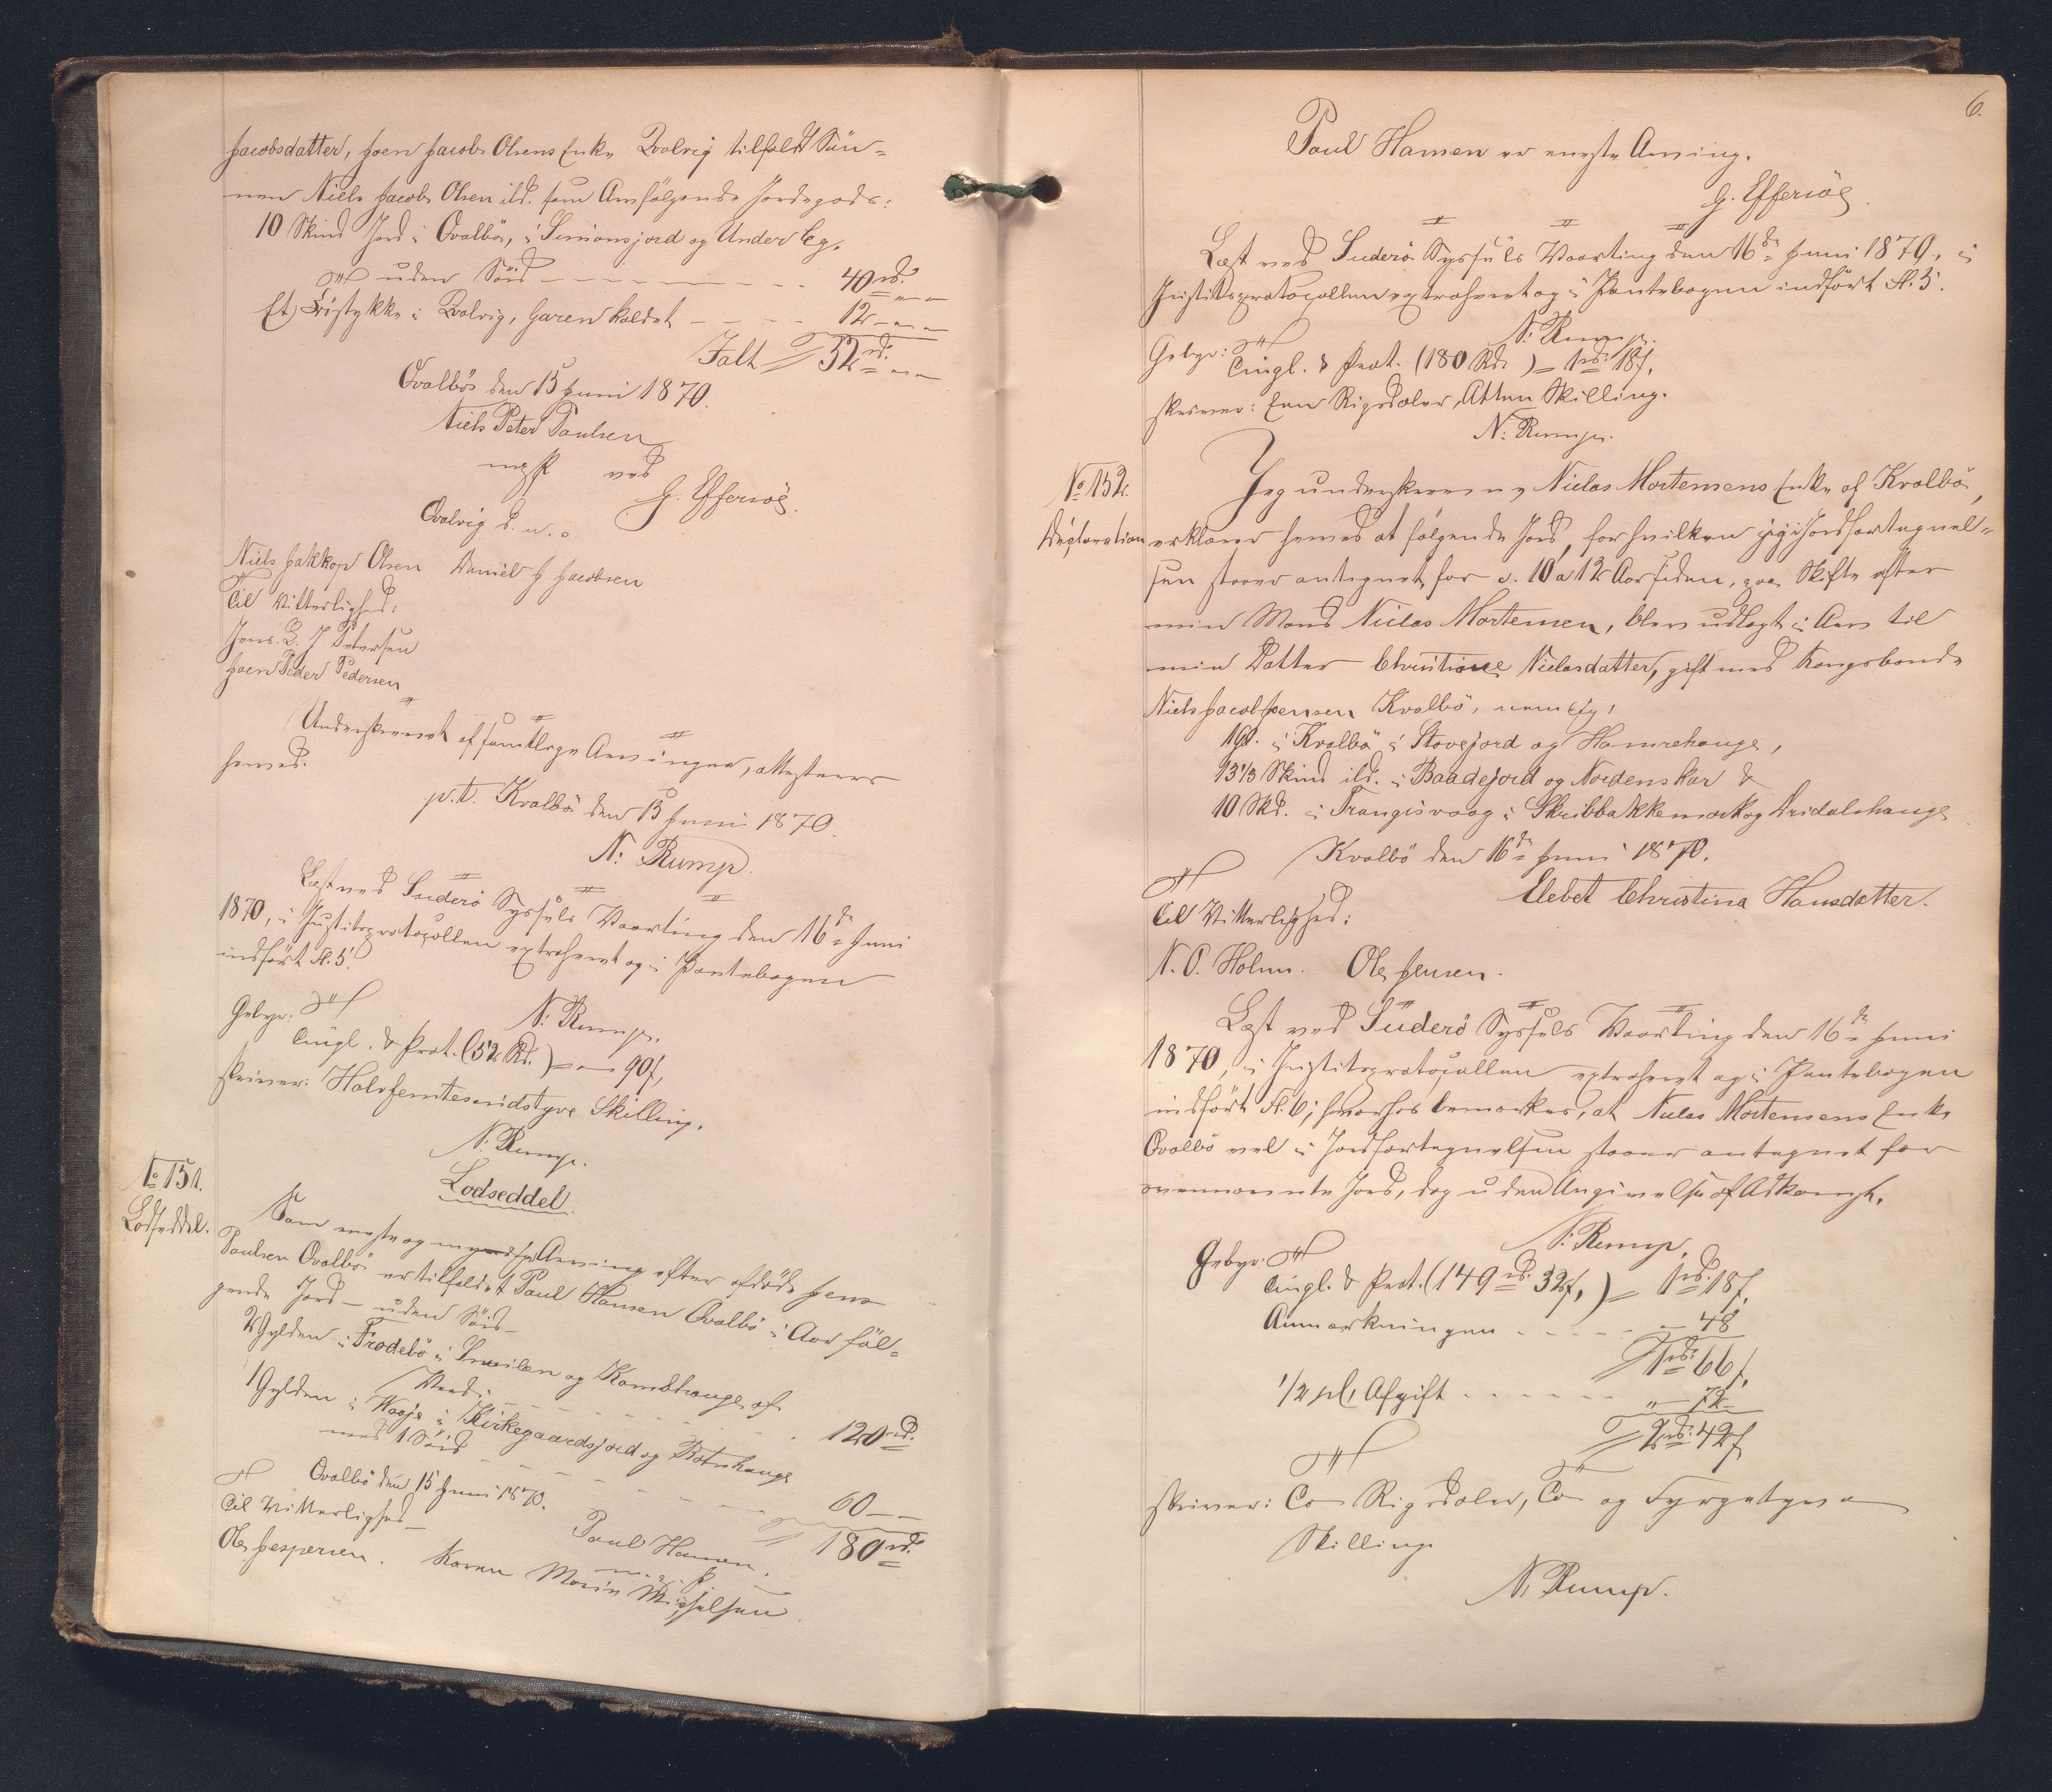 Jacobsdatter, Joen Jacob Olsens Enke Qvalvig tilfaldt Søn=
nen Niels Jacob Olsen ibd. som Arv følgende Jordegods:
10 Skind Jord i Qvalbø, i Simonsjord og Under Ceg,
uden Søid 40 rd.
Et Trøstykke i Qvalvig, Garen kaldet 12 - - -
Ialt 52 rd. - -
Qvalbø den 15 Juni 1870.
Niels Peter Paulsen
m. f. P. ved
G. Effersöe.
Qvalvig D. u. s.
Niels Jakkop Olsen Daniel J Jacobsen
Til Vitterlighed:
Jens. J Petersen
Joen Peder Pedersen
Underskrevet af samtlige Arvinger, attesteres
herved.
p.t. Kvalbö den 15 Juni 1870.
N: Rump.
Læst ved Suderö Syssels Vaarting den 16de Juni
1870, i Justitsprotocollen extraheret og i Pantebogen
indført fl. 5.
N: Rump.
Gebyr:
Tingl. & Prot. (52 Rd.) = - 90 f,
skriver: Halvfemtesindstyve Skilling.
N: Rump.
Lodseddel.
No 151.
Lodseddel.
Som eneste og myndige Arving efter afdöde Jens
Paulsen Qvalbö er tilfaldet Paul Hansen Qvalbö i Arv föl=
gende Jord - uden Söid -
2 Gylden i Frodebö i og Kambhauge af
Værdi 120 rd.
1 Gylden i Waaje i Kirkegaardsjord og Botnhauge
med 1 Söid 60 - -
180 rd.
Qvalbö den 15 Juni 1870.
Paul Hansen.
m. f. P.
Til Vitterlighed
Ole Jespersen. Karen Marie Michelsen.
6.
Paul Hansen er eneste Arving.
G. Effersöe.
Læst ved Suderö Syssels Vaarting den 16de Juni 1870, i
Justitsprotocollen extraheret og i Pantebogen indført fl. 5.
N: Rump.
Gebyr:
Tingl. & Prot. (180 Rd.) = 1 rd. 18 f,
skriver: Een Rigsdaler, Atten Skilling.
N: Rump.
No 152.
Declaration
Jeg underskrevne Niclas Mortensens Enke af Kvalbö,
erklærer herved at følgende Jord, for hvilken jeg i Jordfortegnel=
sen staaer antegnet, for c. 10 a 12 Aar siden, paa Skifte efter
min Mand Niclas Mortensen, blev udlagt i Arv til
min Datter Christiane Niclasdatter, gift med Kongsbonde
Niels Jacob Jensen Kvalbö, nemlig:
1 gl. i Kvalbö i Stovejord og Hamrehauge,
13 1/3 Skind ibd. i Baadejord og Nordenskar &
10 Skd. i Trangisvaag i Skribbakkemark og Aridalshauge
Kvalbö den 16de Juni 1870.
Elebet Christina Hansdatter.
Til Vitterlighed:
N. P. Holm. Ole Jensen.
Læst ved Süderö Syssels Vaarting den 16de Juni
1870, i Justitsprotocollen extraheret og i Pantebogen
indført fl. 6; hvorhos bemærkes, at Niclas Mortensens Enke
Qvalbö vel i Jordfortegnelsen staaer antegnet for
ovennævnte Jord, dog uden Angivelse af Adkomst.
N: Rump.
Gebyr:
Tingl. & Prot. (149 rd. 32 f,) = 1 rd. 18 f,
Anmærkningen - 48
1 rd. 66 f,
1/2 pCt Afgift " - 72 -
2 rd. 42 f
skriver: To Rigsdaler, To og Fyrgetyve
Skilling
N. Rump.